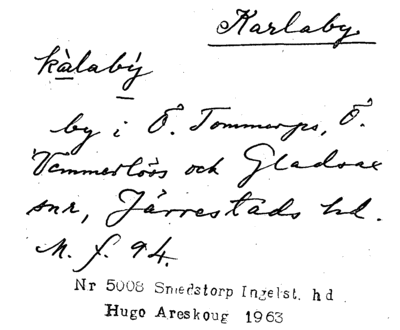 Karlaby
kàlabý
by i Ö. Tommarps, Ö.
Vemmerlövs och Gladsax
snr, Järrestads hd.
M. f. 94.
Nr 5008 Smedstorp Ingelst. hd
Hugo Areskoug 1963